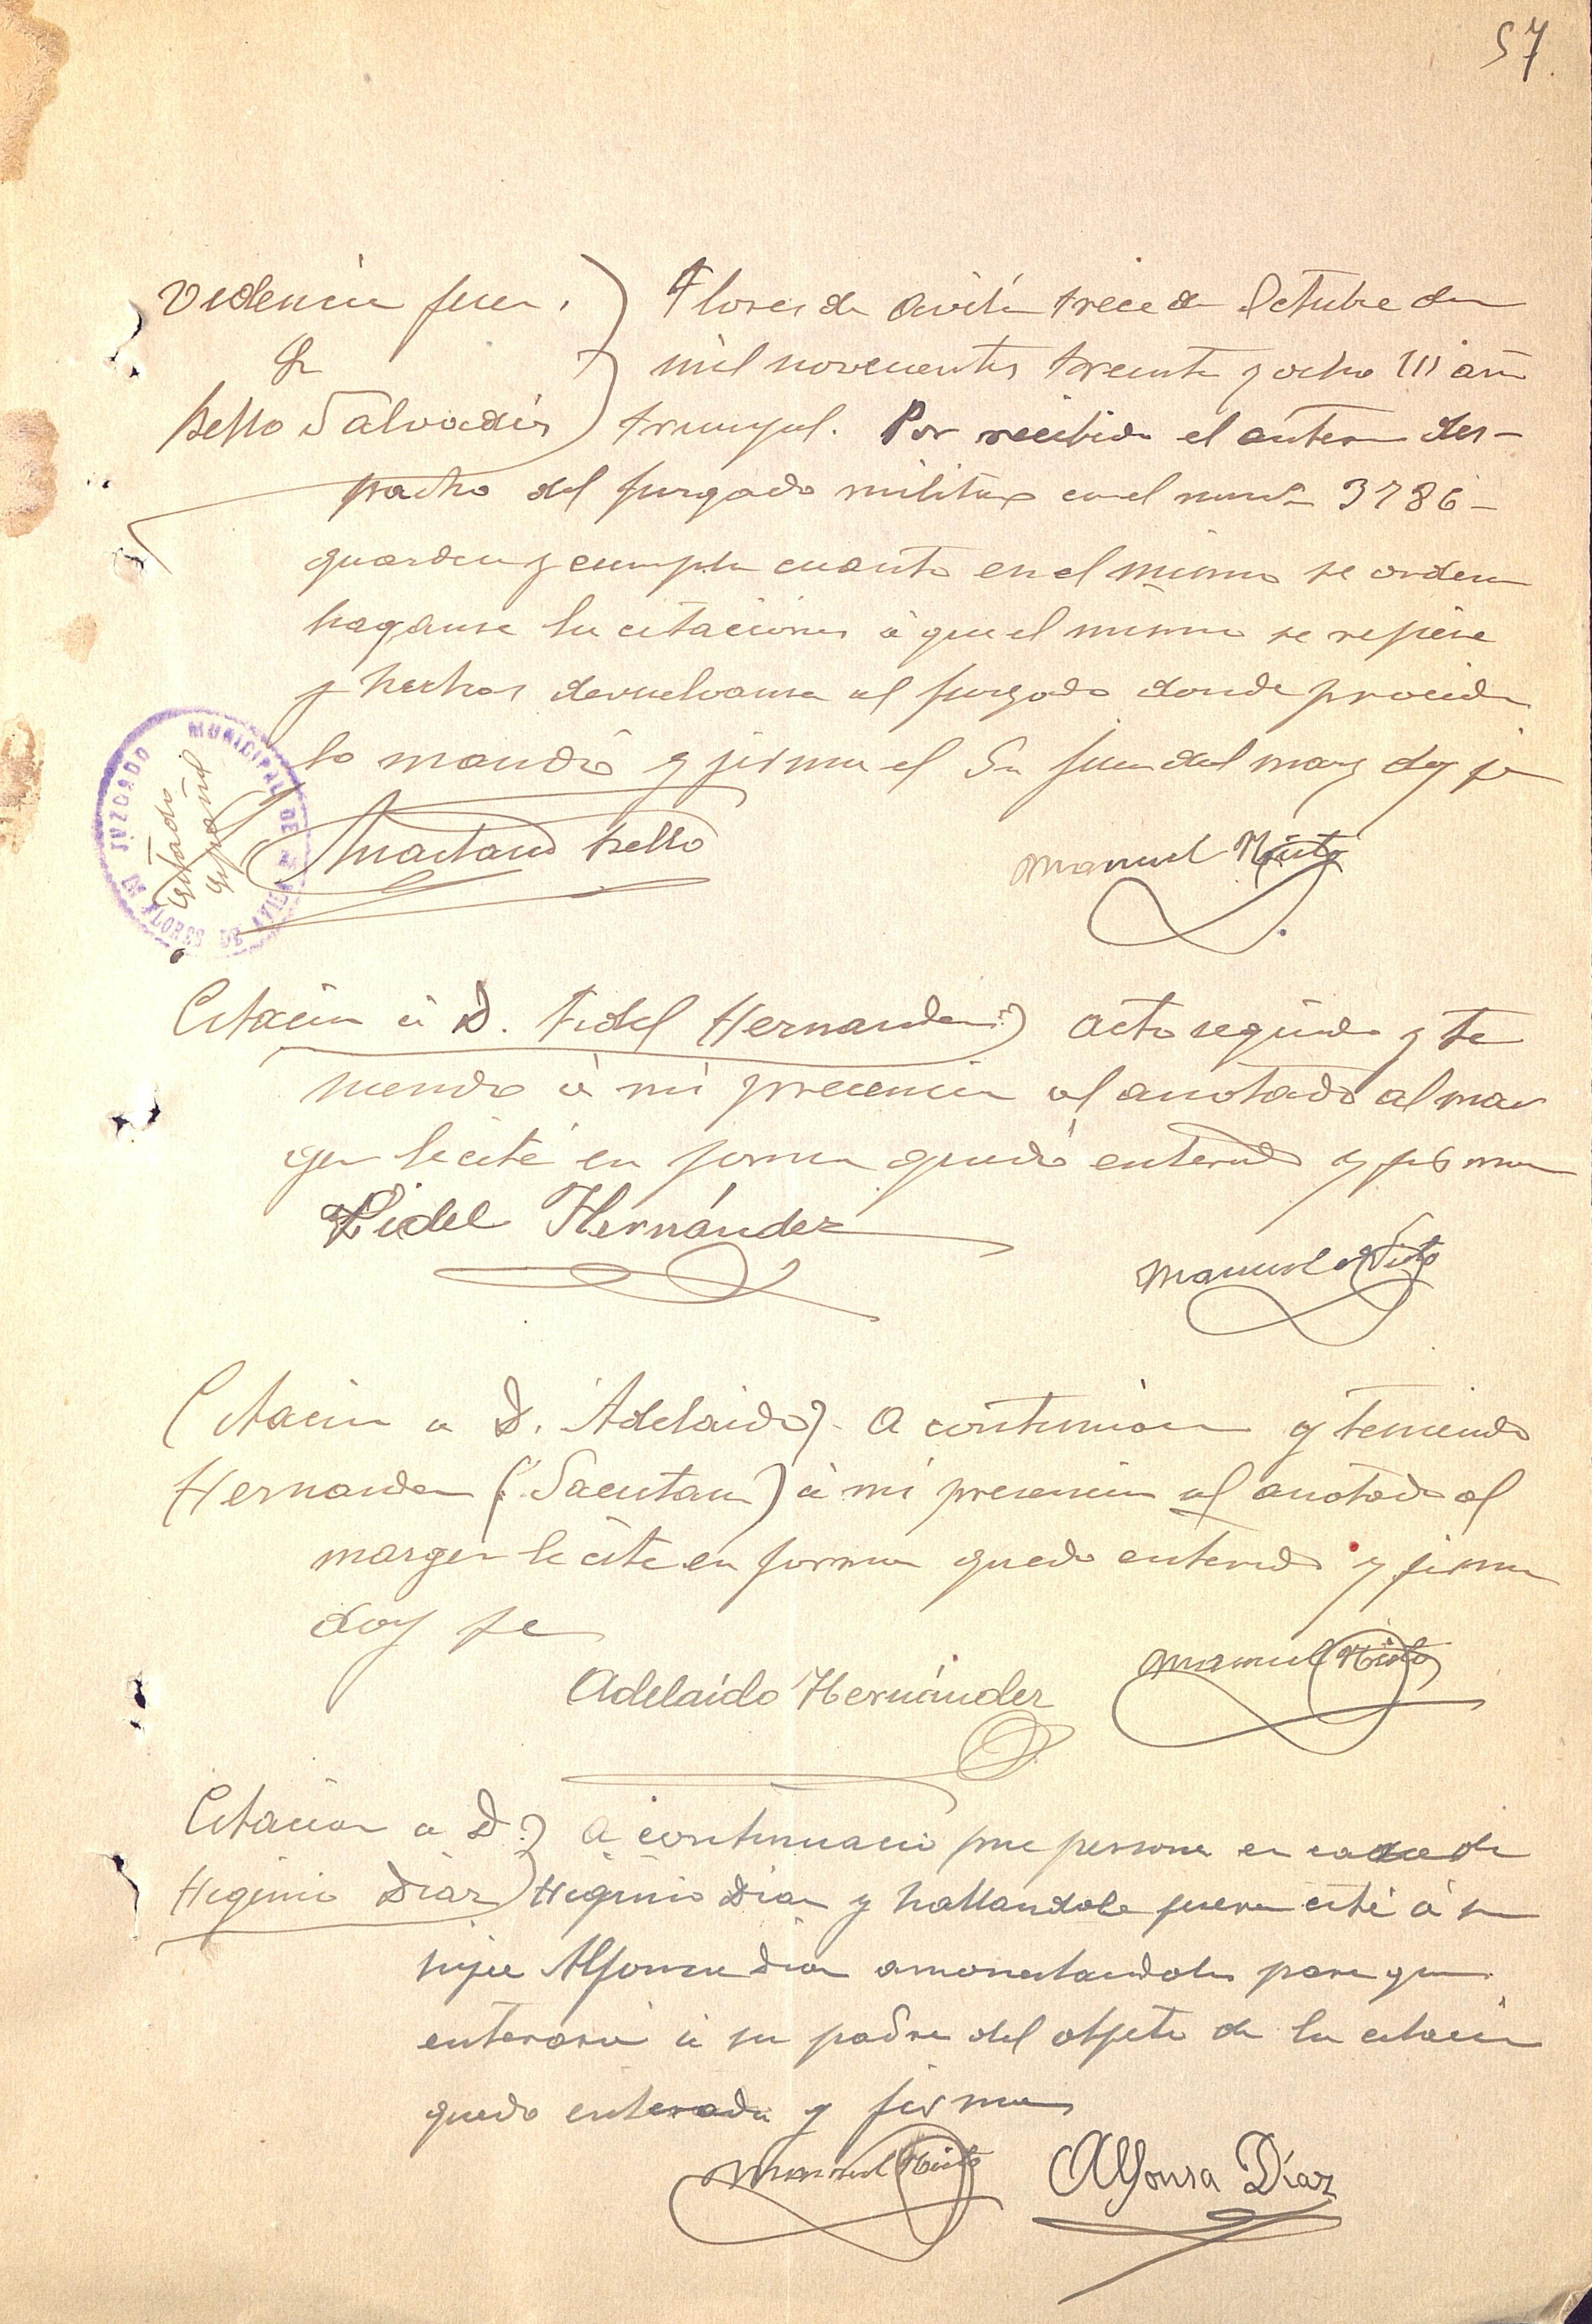 57
Videncia Juez. Flores de Avila trece de Octubre de
mil novecientos treinta y ocho III año
Bello Salvadios triunfal. Por recibido el anterior des-
pacho del Juzgado militar con el num 3786 -
guardese y cumpla cuanto en el mismo se ordena
haganse las citaciones a que el mismo se refiere
y hechas devuelvanse al Juzgado donde procede
lo mandó y firma el Sr Juez del marg doy fe
JUZGADO MUNICIPAL DE
Estado
Español
FLORES DE AVILA
Bello
Manuel Nieto
Citacion a D. Fidel Hernandez Acto seguido y te
niendo a mi presencia al anotado al mar
gen le cité en forma quedó enterado y firma
Fidel Hernández
Manuel Nieto
Citacion a D. Adelaido A continuacion y teniendo
Hernandez a mi presencia al anotado al
margen le cite en forma quedo enterado y firma
doy fe
Adelaido Hernández
Manuel Nieto
Citacion a D. A continuacion me persone en casa de
Higinio Diaz Higinio Diaz y hallandole fuera cité á su
hija Alfonsa Diaz amonestandola para que
enterara a su padre del objeto de la citacion
quedo enterada y firma
Manuel Nieto
Alfonsa Díaz